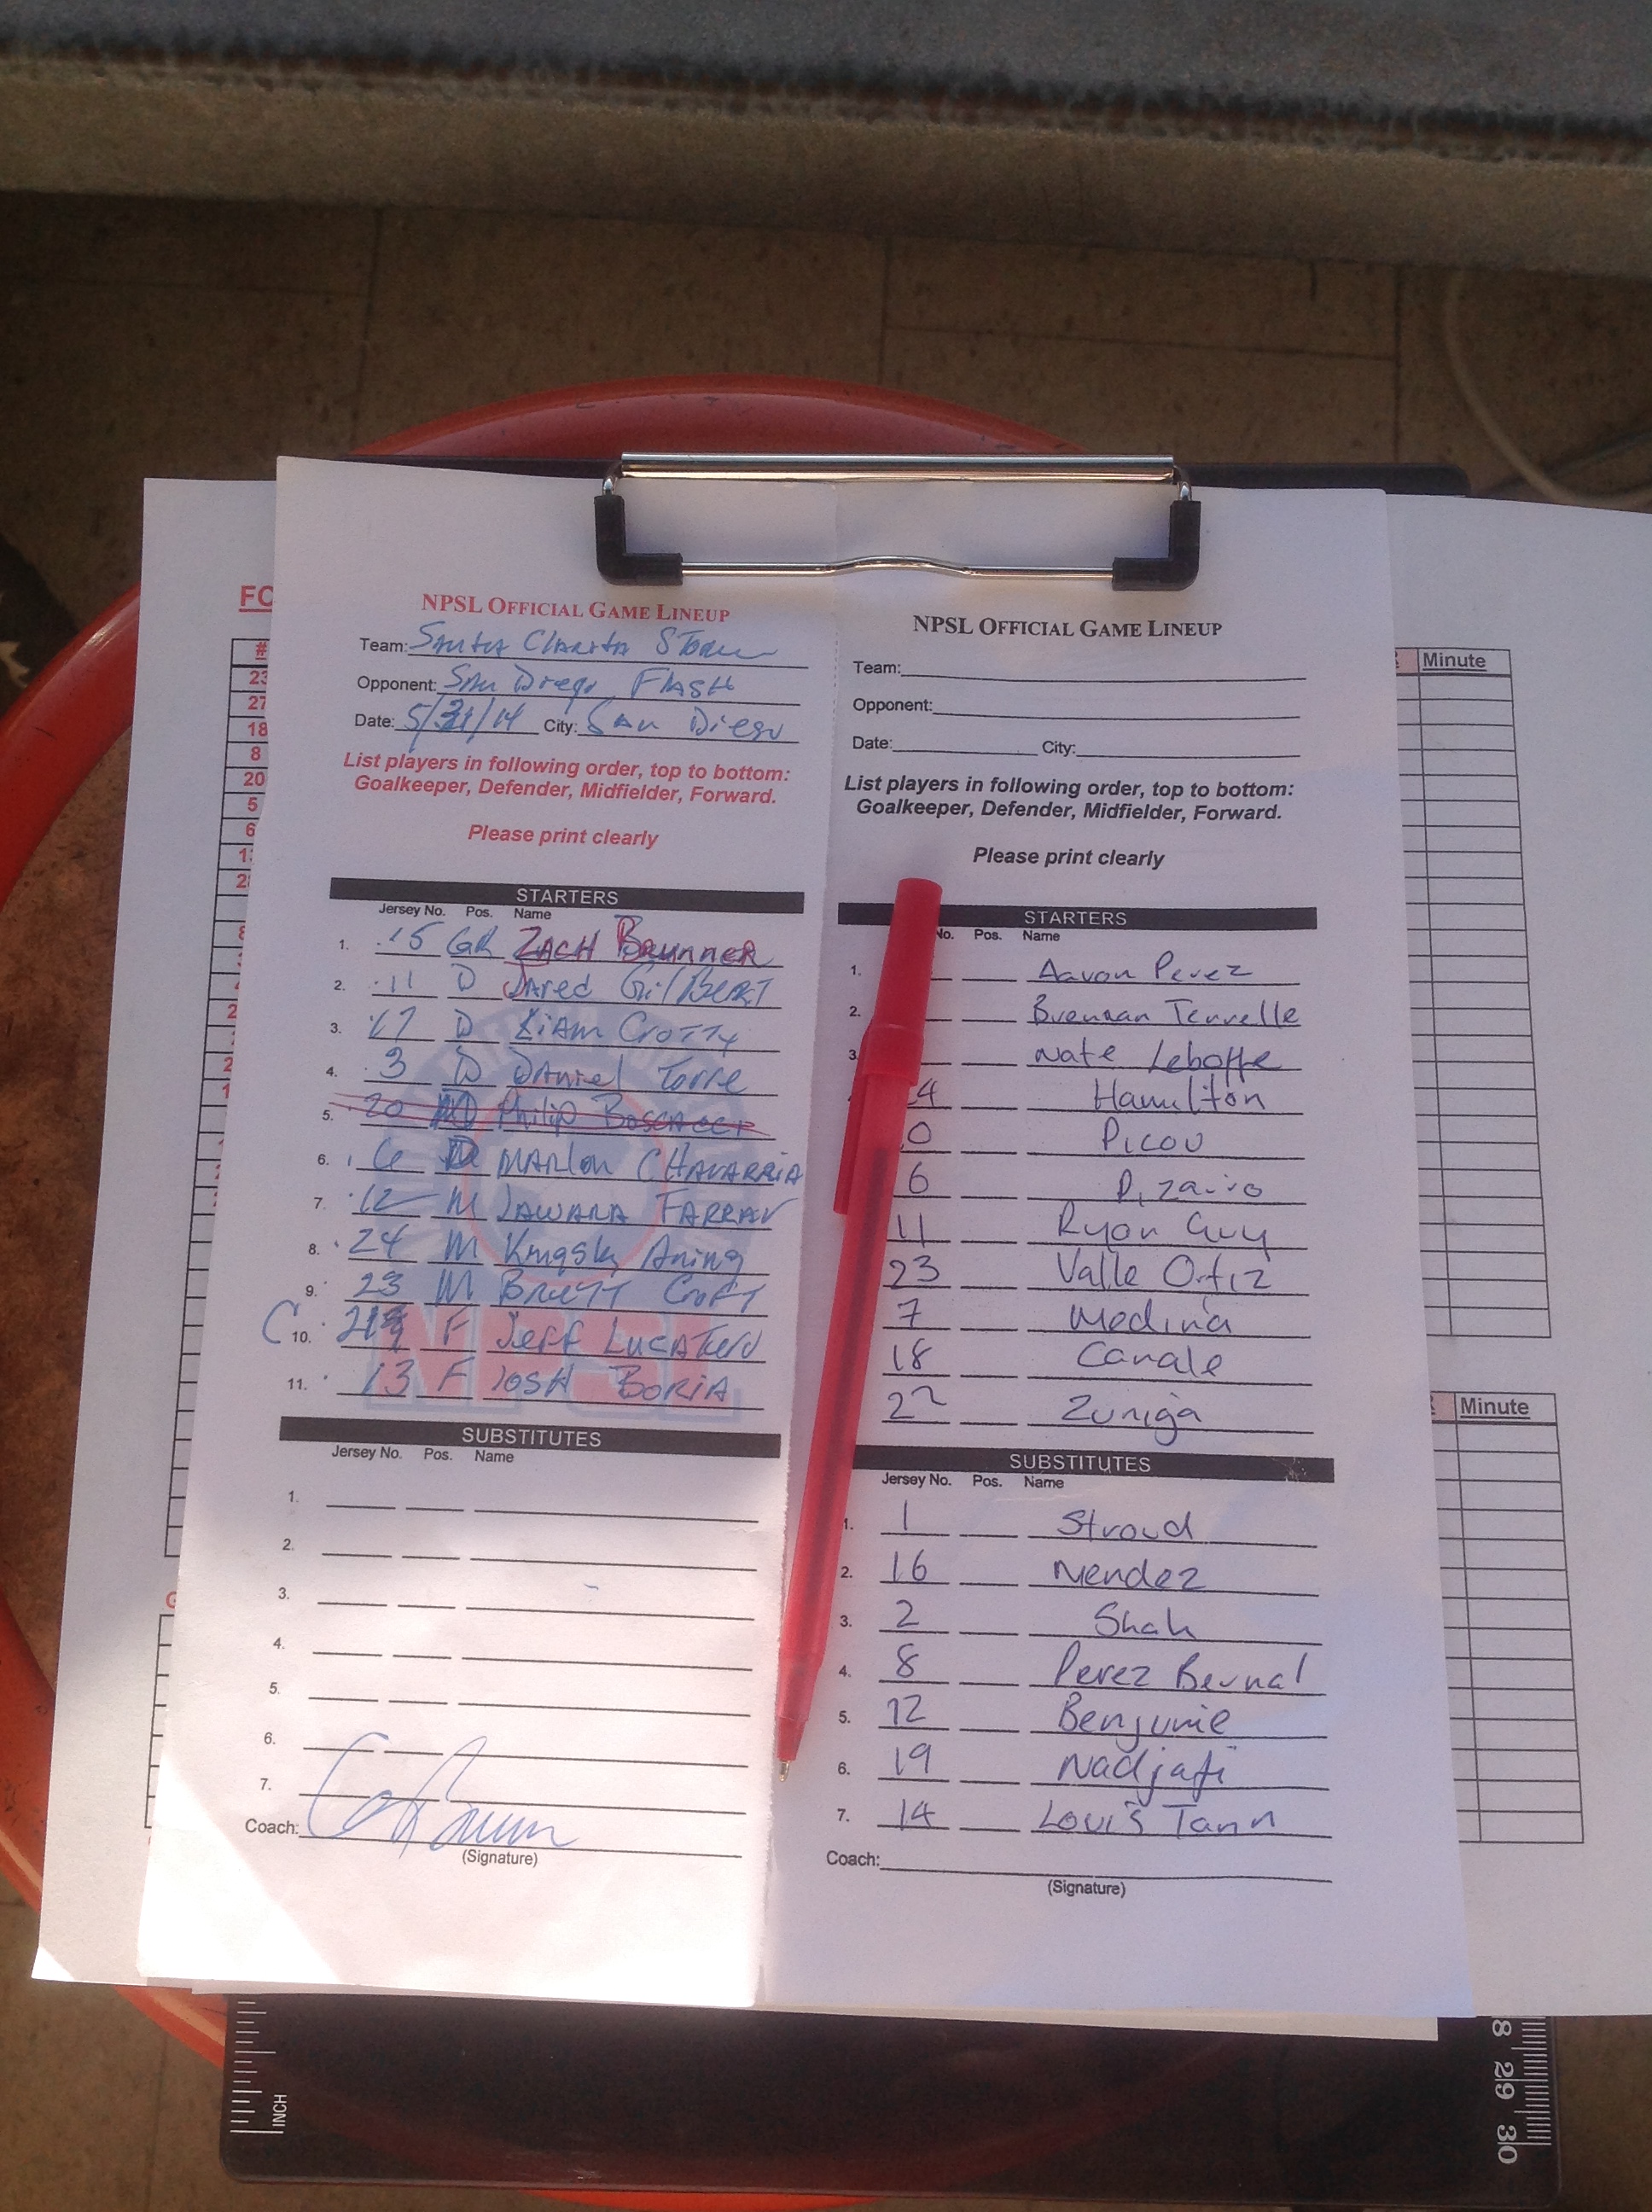 NPSL OFFICIAL GAME LINEUP
Team: Santa Clarita Storm
Opponent: San Diego Flash
Date: 5/31/14 City: San Diego
List players in following order, top to bottom:
Goalkeeper, Defender, Midfielder, Forward.
Please print clearly
STARTERS
Jersey No. Pos. Name
1. 15 GK ZACH BRUNNER
2. 11 D Jared GilBERT
3. 17 D Liam CROTTY
4. 3 D Daniel Torre
5. 20 Philip
6. 6 D MARLON CHAVARRIA
7. 12 M JAWARA FARRAR
8. 24 M Kingsley Aning
9. 23 M BRETT CROFT
C 10. F Jeff
11. 13 F JOSH BORIA
SUBSTITUTES
Jersey No. Pos. Name
1.
2.
3.
4.
5.
6.
7.
Coach:
(Signature)
NPSL OFFICIAL GAME LINEUP
Team:
Opponent:
Date: City:
List players in following order, top to bottom:
Goalkeeper, Defender, Midfielder, Forward.
Please print clearly
STARTERS
No. Pos. Name
1. Aaron Perez
2. Brennan Terrelle
3. Nate Leboffe
4 Hamilton
0 Picou
6 Pizarro
11 Ryan Guy
23 Valle Ortiz
7 Medina
18 Canale
22 Zuniga
SUBSTITUTES
Jersey No. Pos. Name
1. 1 Stroud
2. 16 Mendez
3. 2 Shah
4. 8 Perez Bernal
5. 12 Benjunie
6. 19 Nadjafi
7. 14 Louis Tann
Coach:
(Signature)
FO
#
23
27
18
8
20
5
6
Minute
Minute
INCH
8 29 30